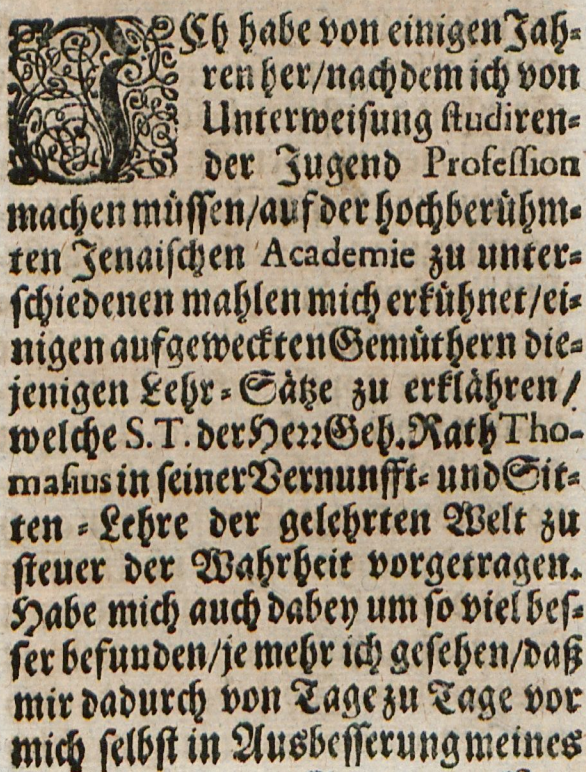 ICh habe von einigen Jah-
ren her/nachdem ich von
Unterweisung studiren-
der Jugend Profession
machen müssen/auf der hochberühm-
ten Jenaischen Academie zu unter-
schiedenen mahlen mich erkühnet/ei-
nigen aufgeweckten Gemüthern die-
jenigen Lehr-Sätze zu erklähren/
welche S.T. der Herr Geh. Rath Tho-
masius in seiner Vernunfft- und Sit-
ten-Lehre der gelehrten Welt zu
steuer der Wahrheit vorgetragen.
Habe mich auch dabey um so viel bes-
ser befunden/je mehr ich gesehen/daß
mir dadurch von Tage zu Tage vor
mich selbst in Ausbesserung meines